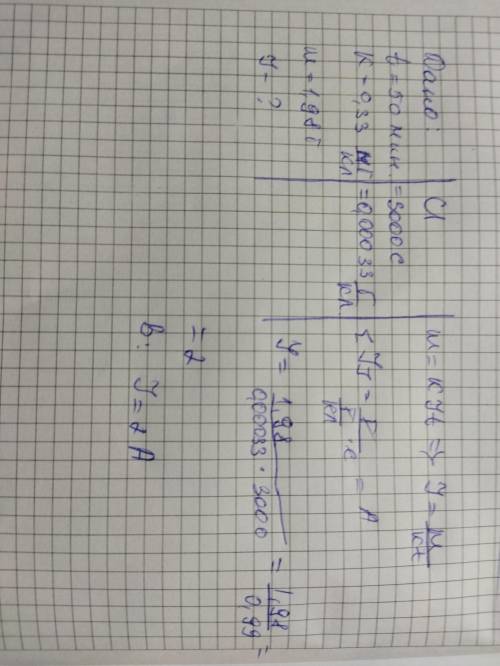 Дано:
t = 50 мин. = 3000 с
K = 0,33 мг/кл = 0,00033 г/кл
m = 1,98 г
J - ?
СИ
m = KJt => J = m/Kt
[J] = г/(г/кл · с) = А
J = 1,98/(0,00033 · 3000) = 1,98/0,99 =
= 2
В: J = 2 А